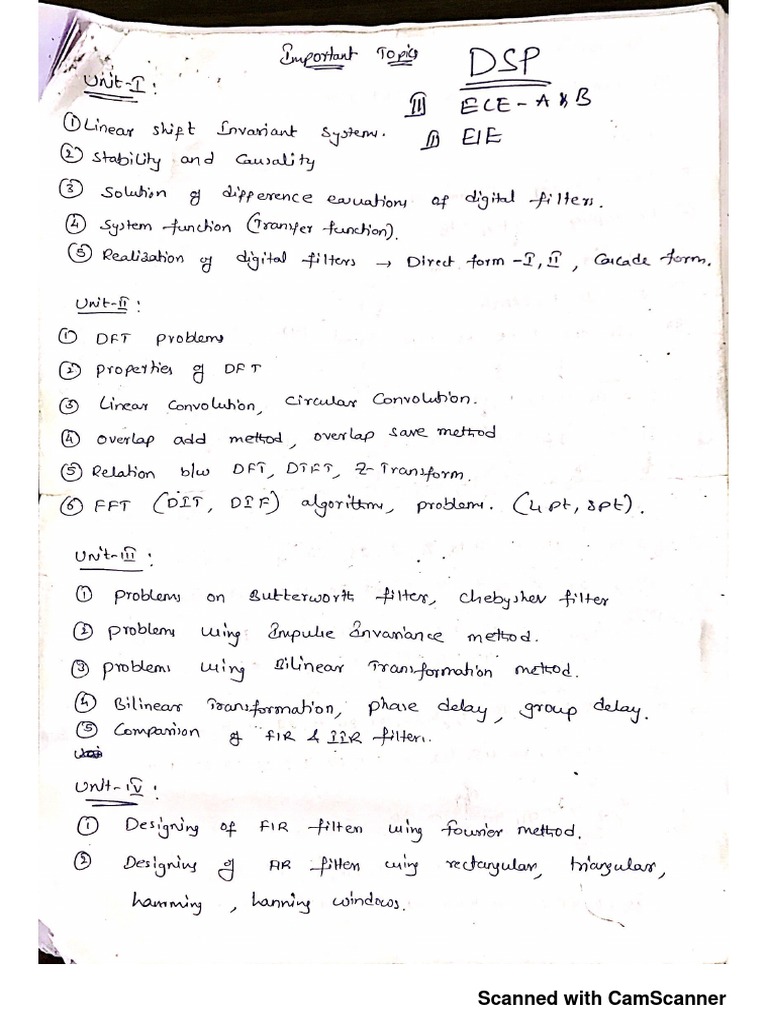 Important Topics
DSP
Unit-I:
III ECE - A & B
II EIE
① Linear shift Invariant System.
② Stability and Causality
③ Solution of difference equations of digital filters.
④ System function (Transfer function).
⑤ Realization of digital filters → Direct form -I, II, Cascade form.
Unit-II:
① DFT problems
② properties of DFT
③ Linear Convolution, Circular Convolution.
④ overlap add method, overlap save method
⑤ Relation b/w DFT, DTFT, Z-Transform.
⑥ FFT (DIT, DIF) algorithms, problems. (4pt, 8pt).
Unit-III:
① problems on Butterworth filter, chebyshev filter
② problems using Impulse Invariance method.
③ problems using Bilinear Transformation method.
④ Bilinear Transformation, phase delay, group delay.
⑤ Comparison of FIR & IIR filters.
Unit-IV:
① Designing of FIR filters using fourier method.
② Designing of filters using rectangular, triangular,
hamming, hanning windows.
Scanned with CamScanner